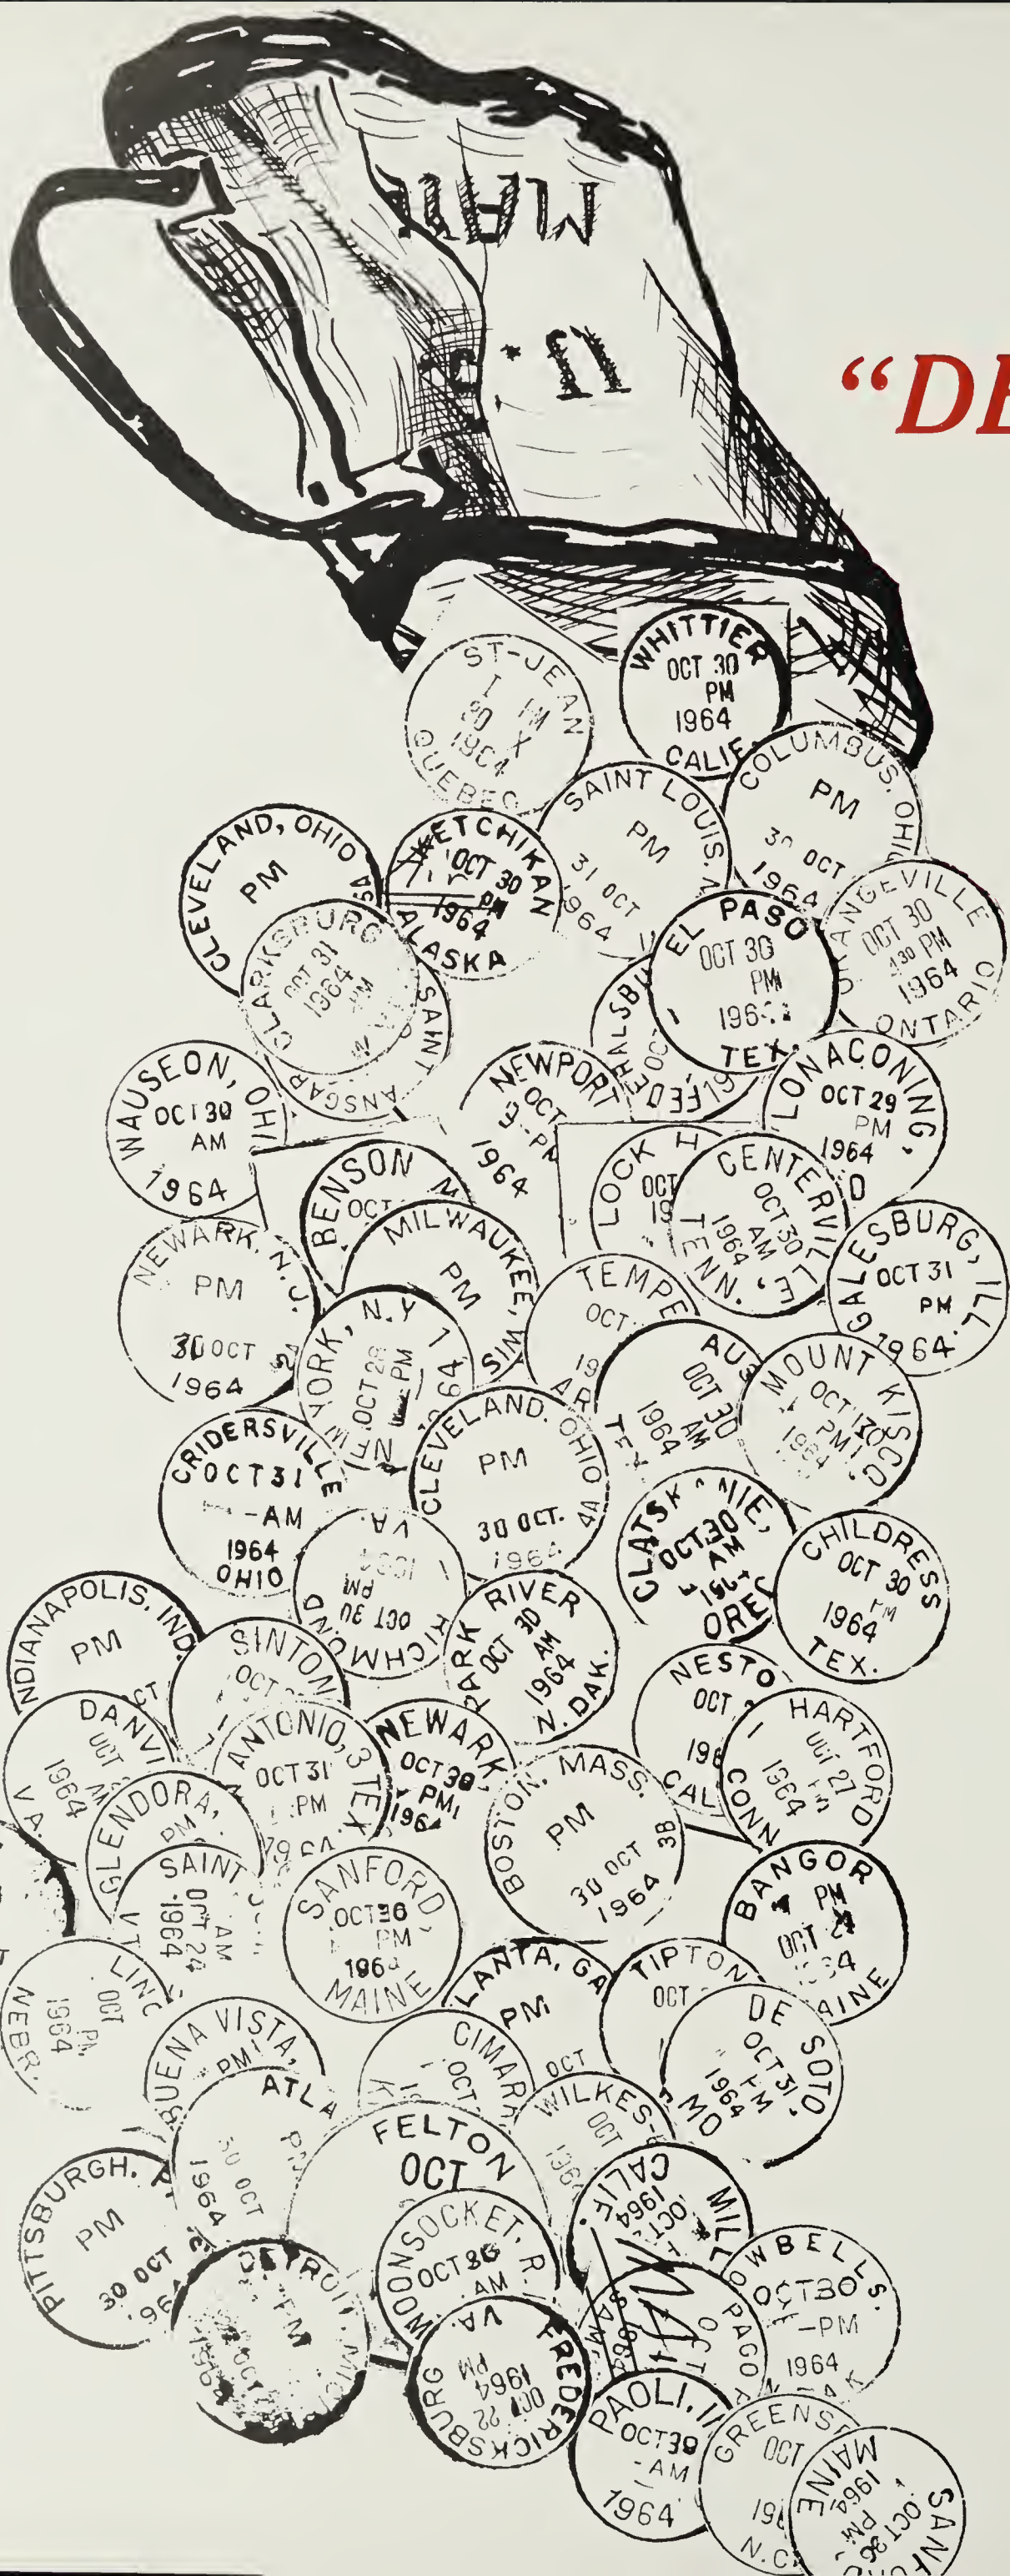 U.S.
MAIL
“DE
ST-JEAN
30 X
1964
QUEBEC
WHITTIER
OCT 30
PM
1964
CALIF.
COLUMBUS, OHIO
PM
30 OCT
1964
SAINT LOUIS, M
PM
31 OCT
1964
CLEVELAND, OHIO
PM
KETCHIKAN
OCT 30
PM
1964
ALASKA
EL PASO
OCT 30
PM
196
TEX.
ORANGEVILLE
OCT 30
430 PM
1964
ONTARIO
CLARKSBURG
OCT 31
PM
1964
W VA
SAINT ANSGAR
WAUSEON, OHI
OCT 30
AM
1964
NEWPORT
OCT
PM
1964
LONACONING,
OCT 29
PM
1964
LOCK H
OCT
19
CENTERVILLE,
OCT 30
AM
1964
TENN.
BENSON
OCT
MILWAUKEE, WIS
PM
GALESBURG, ILL.
OCT 31
PM
1964
NEWARK, N.J.
PM
30 OCT
1964
NEW YORK, N.Y. 1
OCT 28
PM
1964
TEMPE
OCT
19
AR
AUS
OCT 30
AM
1964
TEX
MOUNT KISCO,
OCT 30
PM
1964
CRIDERSVILLE
OCT 31
-AM
1964
OHIO
CLEVELAND, OHIO
PM
30 OCT.
1964
RICHMOND
OCT 30
PM
VA.
CLATSKANIE,
OCT 30
AM
1964
ORE
CHILDRESS
OCT 30
PM
1964
TEX.
INDIANAPOLIS, IND.
PM
SINTON
OCT
PARK RIVER
OCT 30
AM
1964
N. DAK.
NESTO
OCT
196
CAL
HARTFORD
OCT 27
1964
CONN
DANVI
OCT
AM
1964
VA.
ANTONIO, 3 TEX
OCT 31
PM
NEWARK,
OCT 30
PM
196
GLENDORA,
PM
BOSTON, MASS.
PM
30 OCT
1964
38
SAINT
OCT 24
AM
1964
SANFORD,
OCT 30
PM
196
MAINE
BANGOR
PM
OCT
64
AINE
LINC
OCT
PM
1964
NEBR.
LANTA, GA
PM
OCT
TIPTON
OCT
DE SOTO,
OCT 31
PM
1964
MO
BUENA VISTA,
PM
CIMARR
OCT
ATLA
PM
30 OCT
1964
WILKES-
OCT
196
FELTON
OCT
PITTSBURGH, P
PM
30 OCT
196
WOONSOCKET, R.
OCT 30
AM
MILL
OCT
1964
CALIF.
BOWBELLS.
OCT 30
-PM
1964
DETROIT, MICH
PM
PAGO P
OCT
1964
SAM
FREDERICKSBURG
OCT 22
PM
1964
VA.
PAOLI, I
OCT 30
-AM
1964
GREENS
OCT
19
N.C.
SANF
OCT 30
PM
1964
MAINE